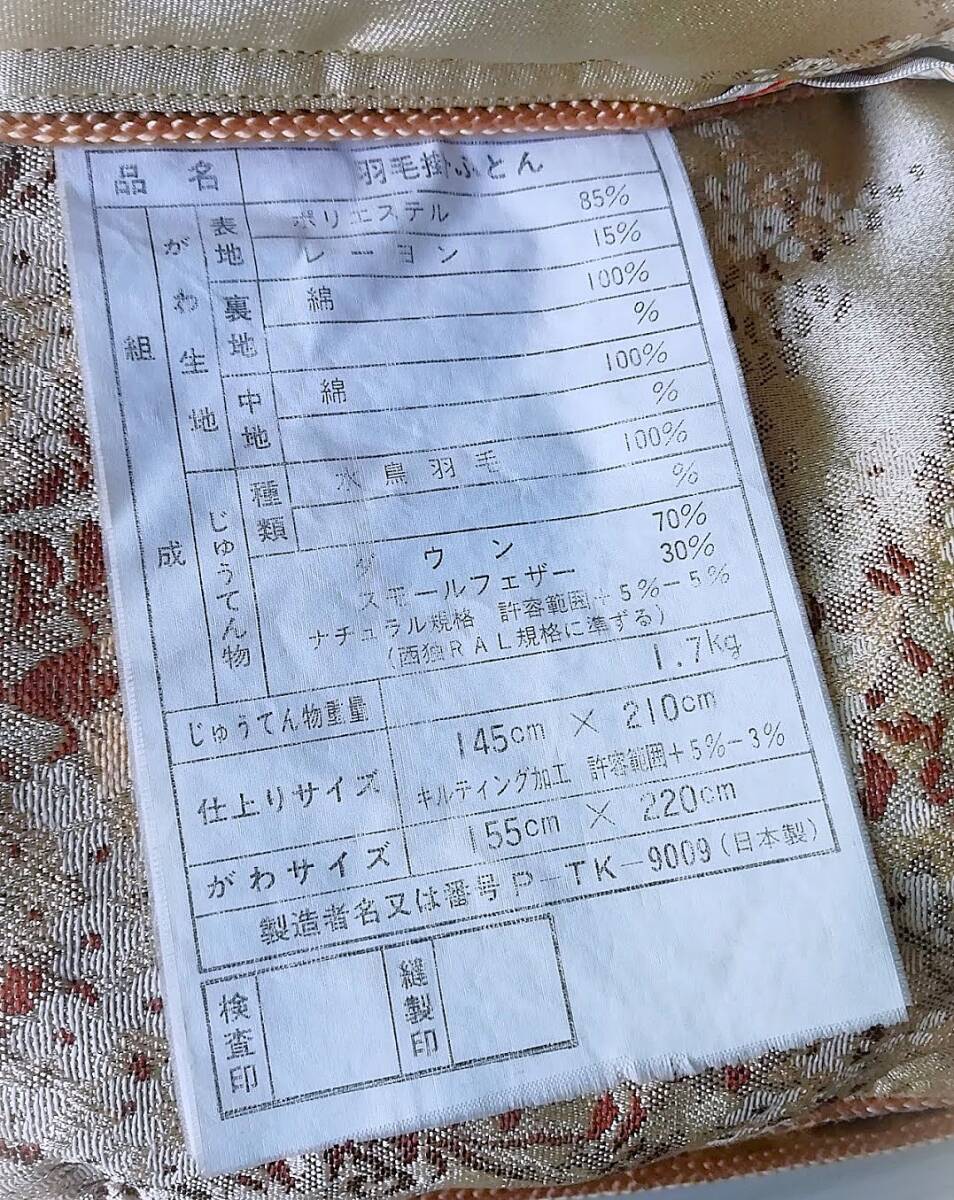 品名 羽毛掛ふとん
組成 がわ生地 表地 ポリエステル 85%
レーヨン 15%
裏地 綿 100%
%
中地 綿 100%
%
じゅうてん物 種類 水鳥羽毛 100%
%
ダウン 70%
スモールフェザー 30%
ナチュラル規格 許容範囲+5%-5%
(西独RAL規格に準ずる)
じゅうてん物重量 1.7kg
仕上りサイズ 145cm × 210cm
キルティング加工 許容範囲+5%-3%
がわサイズ 155cm × 220cm
製造者名又は番号 P-TK-9009(日本製)
検査印 縫製印